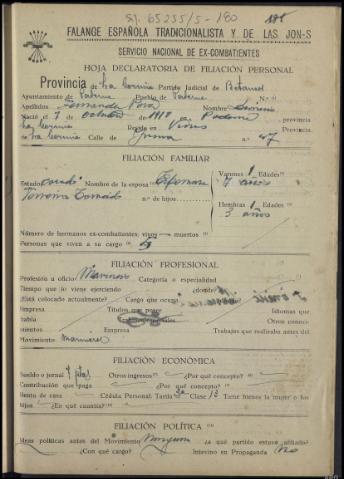 sg. 65255/5-180
FALANGE ESPAÑOLA TRADICIONALISTA Y DE LAS JON-S
SERVICIO NACIONAL DE EX-COMBATIENTES
HOJA DECLARATORIA DE FILIACIÓN PERSONAL
Provincia de La Coruña Partido Judicial de Betanzos
Ayuntamiento de Paderne Pueblo de Paderne N.º
Apellidos Nombre
Nació el 7 de octubre de 1910 en Paderne provincia
La Coruña Reside en provincia
La Coruña Calle de n.º 47
FILIACIÓN FAMILIAR
Estado casado Nombre de la esposa Varones 1 Edades
7 años
n.º de hijos
Hembras 1 Edades
3 años
Número de hermanos ex-combatientes: vivos muertos
Personas que viven a su cargo
FILIACIÓN PROFESIONAL
Profesión u oficio Marinero Categoría o especialidad
Tiempo que lo viene ejerciendo ¿donde?
¿Está colocado actualmente? Cargo que ocupa
Empresa Títulos que posee Idiomas que
habla Otros conoci-
mientos Empresa Trabajos que realizaba antes del
Movimiento Marinero
FILIACIÓN ECONÓMICA
Sueldo o jornal 7 ptas Otros ingresos ¿Por qué concepto?
Contribución que paga ¿Por qué concepto?
Renta de casa Cédula Personal Tarifa 3ª Clase 13 Tiene bienes la mujer o los
hijos ¿En qué cuantía?
FILIACIÓN POLÍTICA
Ideas políticas antes del Movimiento Ninguna ¿a qué partido estuvo afiliado?
¿Con qué cargo? Intervino en Propaganda No